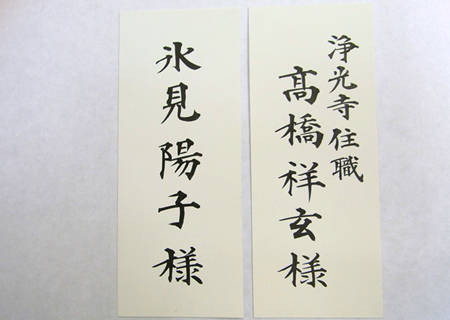 浄光寺住職
髙橋祥玄様
氷見陽子様